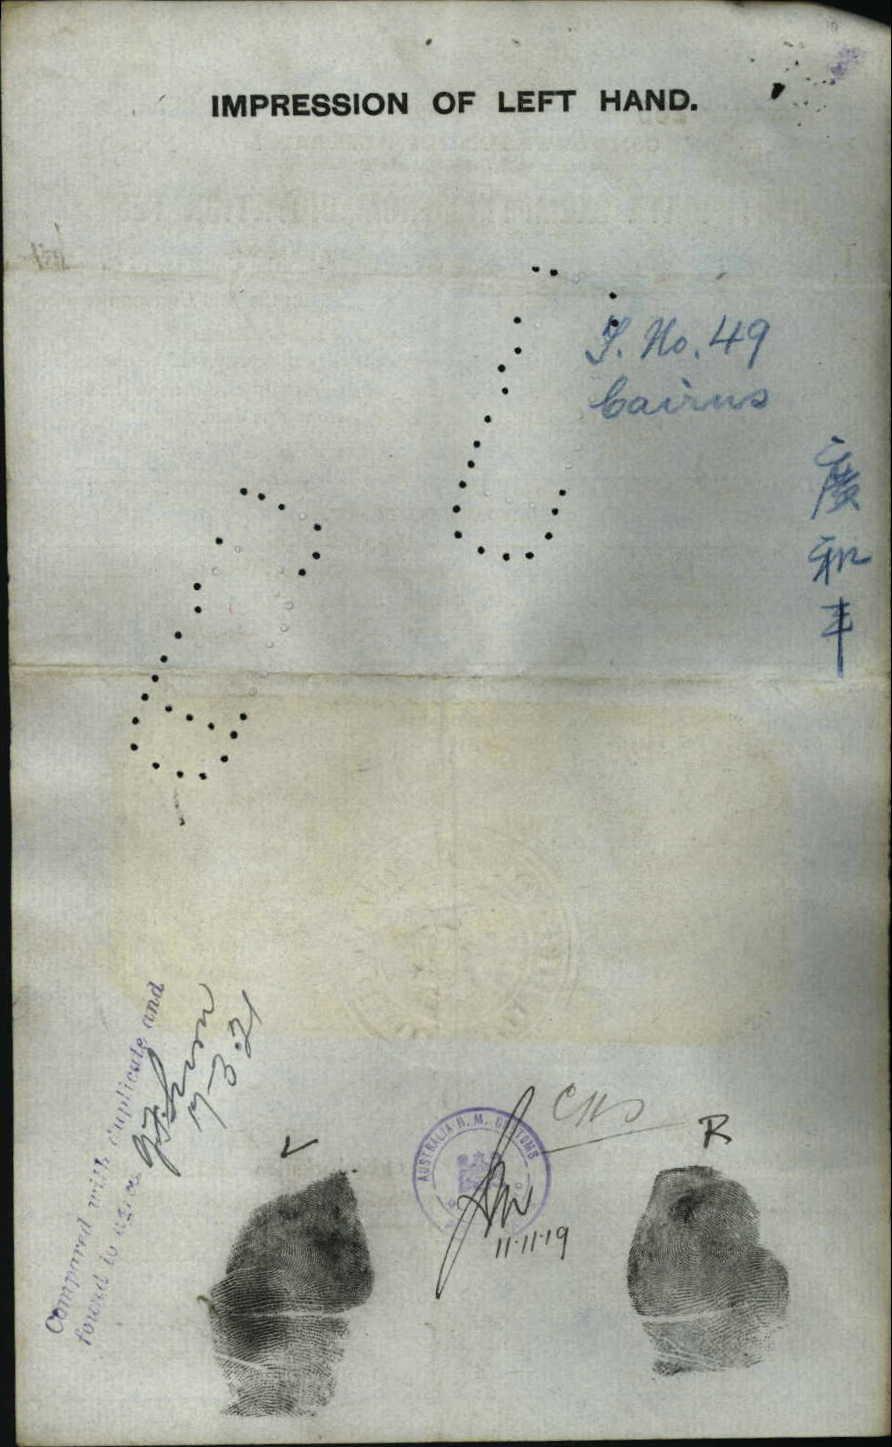 IMPRESSION OF LEFT HAND.
No. 49
Cairns
廣
和
丰
Compared with duplicate and
found to agree
7-3-21
L
R
AUSTRALIA H. M. CUSTOMS
11-11-19